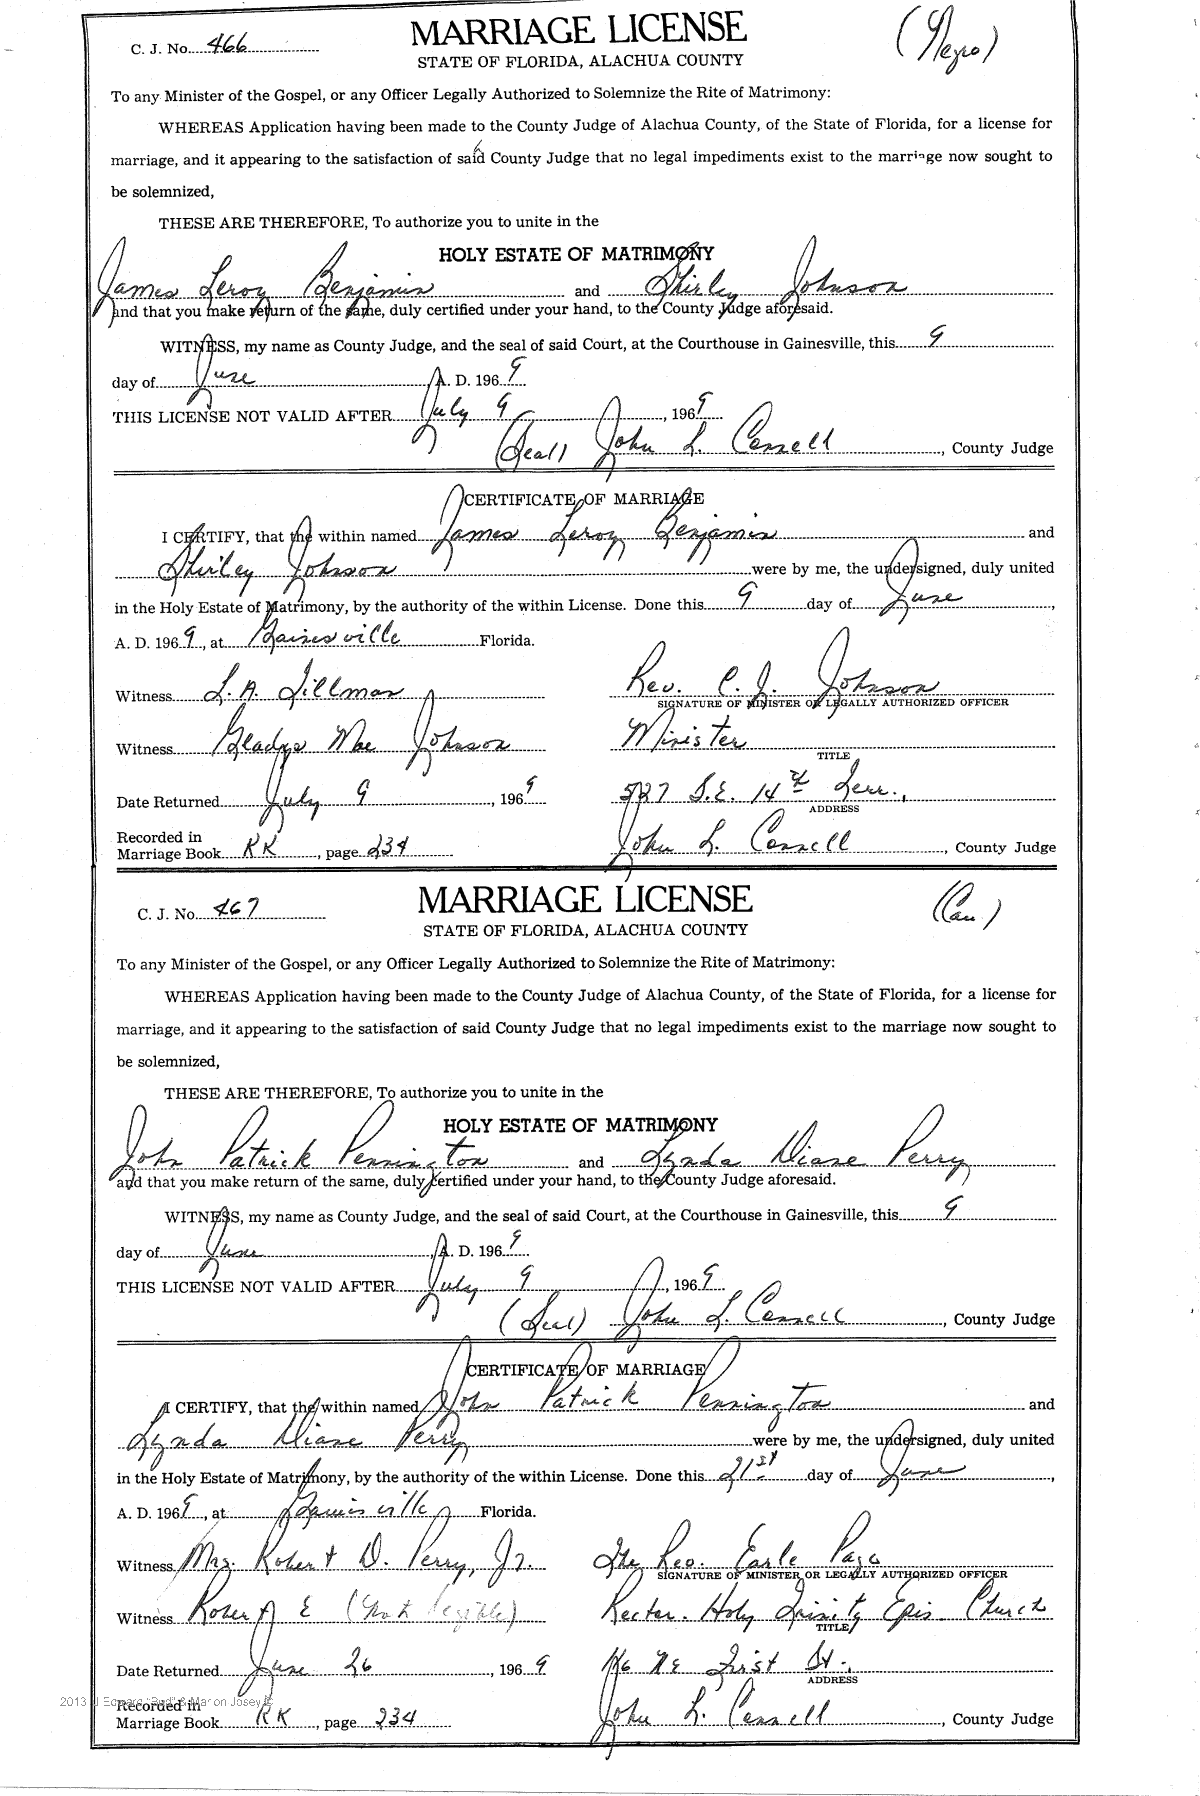 C. J. No. 466
MARRIAGE LICENSE
(Negro)
STATE OF FLORIDA, ALACHUA COUNTY
To any Minister of the Gospel, or any Officer Legally Authorized to Solemnize the Rite of Matrimony:
WHEREAS Application having been made to the County Judge of Alachua County, of the State of Florida, for a license for
marriage, and it appearing to the satisfaction of said County Judge that no legal impediments exist to the marriage now sought to
be solemnized,
THESE ARE THEREFORE, To authorize you to unite in the
HOLY ESTATE OF MATRIMONY
James Leroy Benjamin and Shirley Johnson
and that you make return of the same, duly certified under your hand, to the County Judge aforesaid.
WITNESS, my name as County Judge, and the seal of said Court, at the Courthouse in Gainesville, this 9
day of June A. D. 196 9
THIS LICENSE NOT VALID AFTER July 9, 196 9
(Seal) John L. Connell, County Judge
CERTIFICATE OF MARRIAGE
I CERTIFY, that the within named James Leroy Benjamin and
Shirley Johnson were by me, the undersigned, duly united
in the Holy Estate of Matrimony, by the authority of the within License. Done this 9 day of June,
A. D. 196 9, at Gainesville Florida.
Witness L. A. Tillman Rev. C. J. Johnson
SIGNATURE OF MINISTER OR LEGALLY AUTHORIZED OFFICER
Witness Gladys Mae Johnson Minister
TITLE
Date Returned July 9, 196 9 527 S.E. 14th Terr.,
ADDRESS
Recorded in
Marriage Book KK, page 234 John L. Connell, County Judge
C. J. No. 467
MARRIAGE LICENSE
(Cau.)
STATE OF FLORIDA, ALACHUA COUNTY
To any Minister of the Gospel, or any Officer Legally Authorized to Solemnize the Rite of Matrimony:
WHEREAS Application having been made to the County Judge of Alachua County, of the State of Florida, for a license for
marriage, and it appearing to the satisfaction of said County Judge that no legal impediments exist to the marriage now sought to
be solemnized,
THESE ARE THEREFORE, To authorize you to unite in the
HOLY ESTATE OF MATRIMONY
John Patrick Pennington and Lynda Diane Perry
and that you make return of the same, duly certified under your hand, to the County Judge aforesaid.
WITNESS, my name as County Judge, and the seal of said Court, at the Courthouse in Gainesville, this 9
day of June, A. D. 196 9
THIS LICENSE NOT VALID AFTER July 9, 196 9
(Seal) John L. Connell, County Judge
CERTIFICATE OF MARRIAGE
I CERTIFY, that the within named John Patrick Pennington and
Lynda Diane Perry were by me, the undersigned, duly united
in the Holy Estate of Matrimony, by the authority of the within License. Done this 21st day of June,
A. D. 196 9, at Gainesville Florida.
Witness Mrs. Robert D. Perry, Jr. The Rev. Earle Page
SIGNATURE OF MINISTER OR LEGALLY AUTHORIZED OFFICER
Witness Robert E (Not legible) Rector - Holy Trinity Epis. Church
TITLE
Date Returned June 26, 196 9 116 NE First St.,
ADDRESS
2013 J Edward "Bud" & Marion Josey ©
Recorded in
Marriage Book KK, page 234 John L. Connell, County Judge